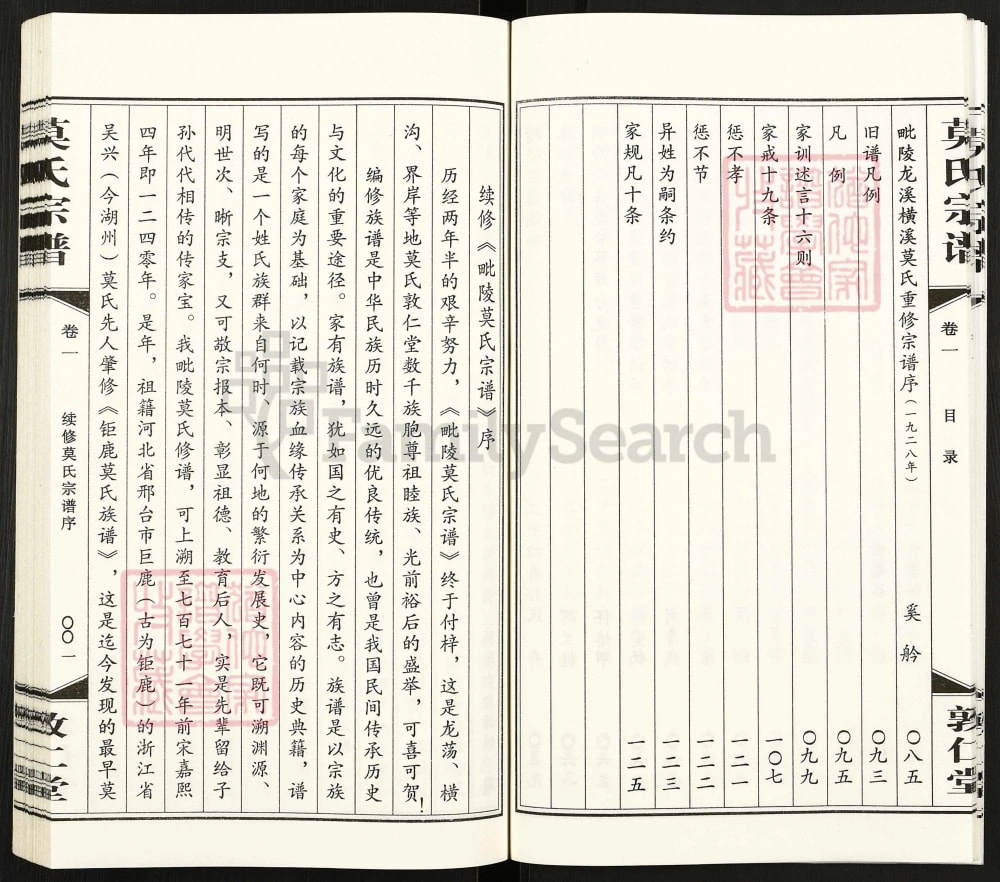 莫氏宗谱
卷一
目录
敦仁堂
毗陵龙溪横溪莫氏重修宗谱序(一九二八年) 奚舲 〇八五
旧谱凡例 〇九三
凡例 〇九五
家训述言十六则 〇九九
家戒十九条 一〇七
惩不孝 一二一
惩不节 一二二
异姓为嗣条约 一二三
家规凡十条 一二五
续修《毗陵莫氏宗谱》序
历经两年半的艰辛努力,《毗陵莫氏宗谱》终于付梓,这是龙荡、横
沟、界岸等地莫氏敦仁堂数千族胞尊祖睦族、光前裕后的盛举,可喜可贺!
编修族谱是中华民族历时久远的优良传统,也曾是我国民间传承历史
与文化的重要途径。家有族谱,犹如国之有史、方之有志。族谱是以宗族
的每个家庭为基础,以记载宗族血缘传承关系为中心内容的历史典籍,谱
写的是一个姓氏族群来自何时、源于何地的繁衍发展史,它既可溯渊源、
明世次、晰宗支,又可敬宗报本、彰显祖德、教育后人,实是先辈留给子
孙代代相传的传家宝。我毗陵莫氏修谱,可上溯至七百七十一年前宋嘉熙
四年即一二四零年。是年,祖籍河北省邢台市巨鹿(古为钜鹿)的浙江省
吴兴(今湖州)莫氏先人肇修《钜鹿莫氏族谱》,这是迄今发现的最早莫
莫氏宗谱
卷一
续修莫氏宗谱序
〇〇一
敦仁堂
FamilySearch